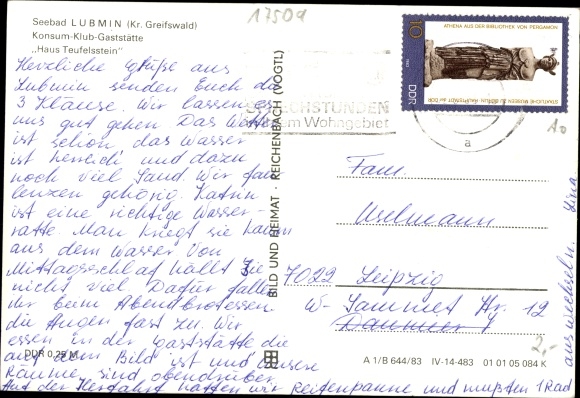 Seebad LUBMIN (Kr. Greifswald)
Konsum-Klub-Gaststätte
„Haus Teufelsstein"
Herzliche Grüße aus
Lubmin senden Euch die
3 Klause. Wir lassen es
uns gut gehen. Das Wetter
ist schön, das Wasser
ist herrlich und dazu
noch viel Sand. Wir fau
lenzen gehörig. Katrin
ist eine richtige Wasser-
ratte. Man kriegt sie kaum
aus dem Wasser. Von
Mittagsschlaf hält sie
nicht viel. Dafür fallen
ihr beim Abendbrotessen
die Augen fast zu. Wir
essen in der Gaststätte die
auf dem Bild ist und unsere
Räume sind obendrüber.
Auf der Herfahrt hatten wir Reifenpanne und mußten 1 Rad
auswechseln.
EVP DDR 0,25 M
BILD UND HEIMAT · REICHENBACH (VOGTL)
17509
SPRECHSTUNDEN
Wohngebiet
a
ATHENA AUS DER BIBLIOTHEK VON PERGAMON
10
DDR
1983
STAATLICHE MUSEEN ZU BERLIN, HAUPTSTADT der DDR
Fam.
Uselmann
7022 Leipzig
W-Sammet Str. 12
2,-
A 1/B 644/83 IV-14-483 01 01 05 084 K